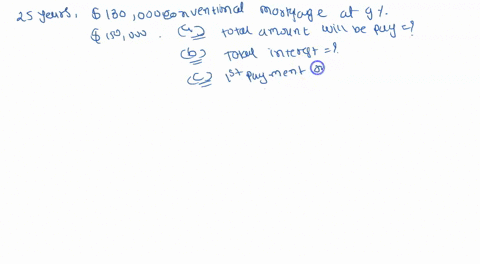 25 years, $130,000 conventional mortgage at 9%.
$150,000. (a) Total amount will be pay = ?
(b) Total interest = ?
(c) 1st payment